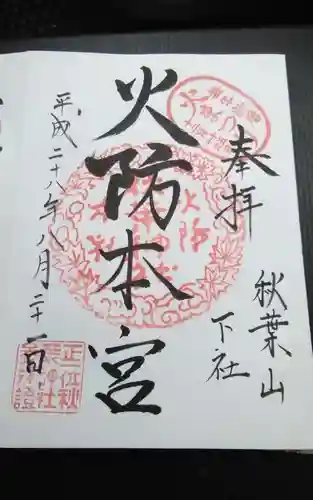 奉拝
秋葉山
下社
火防本宮
平成二十八年八月二十一日